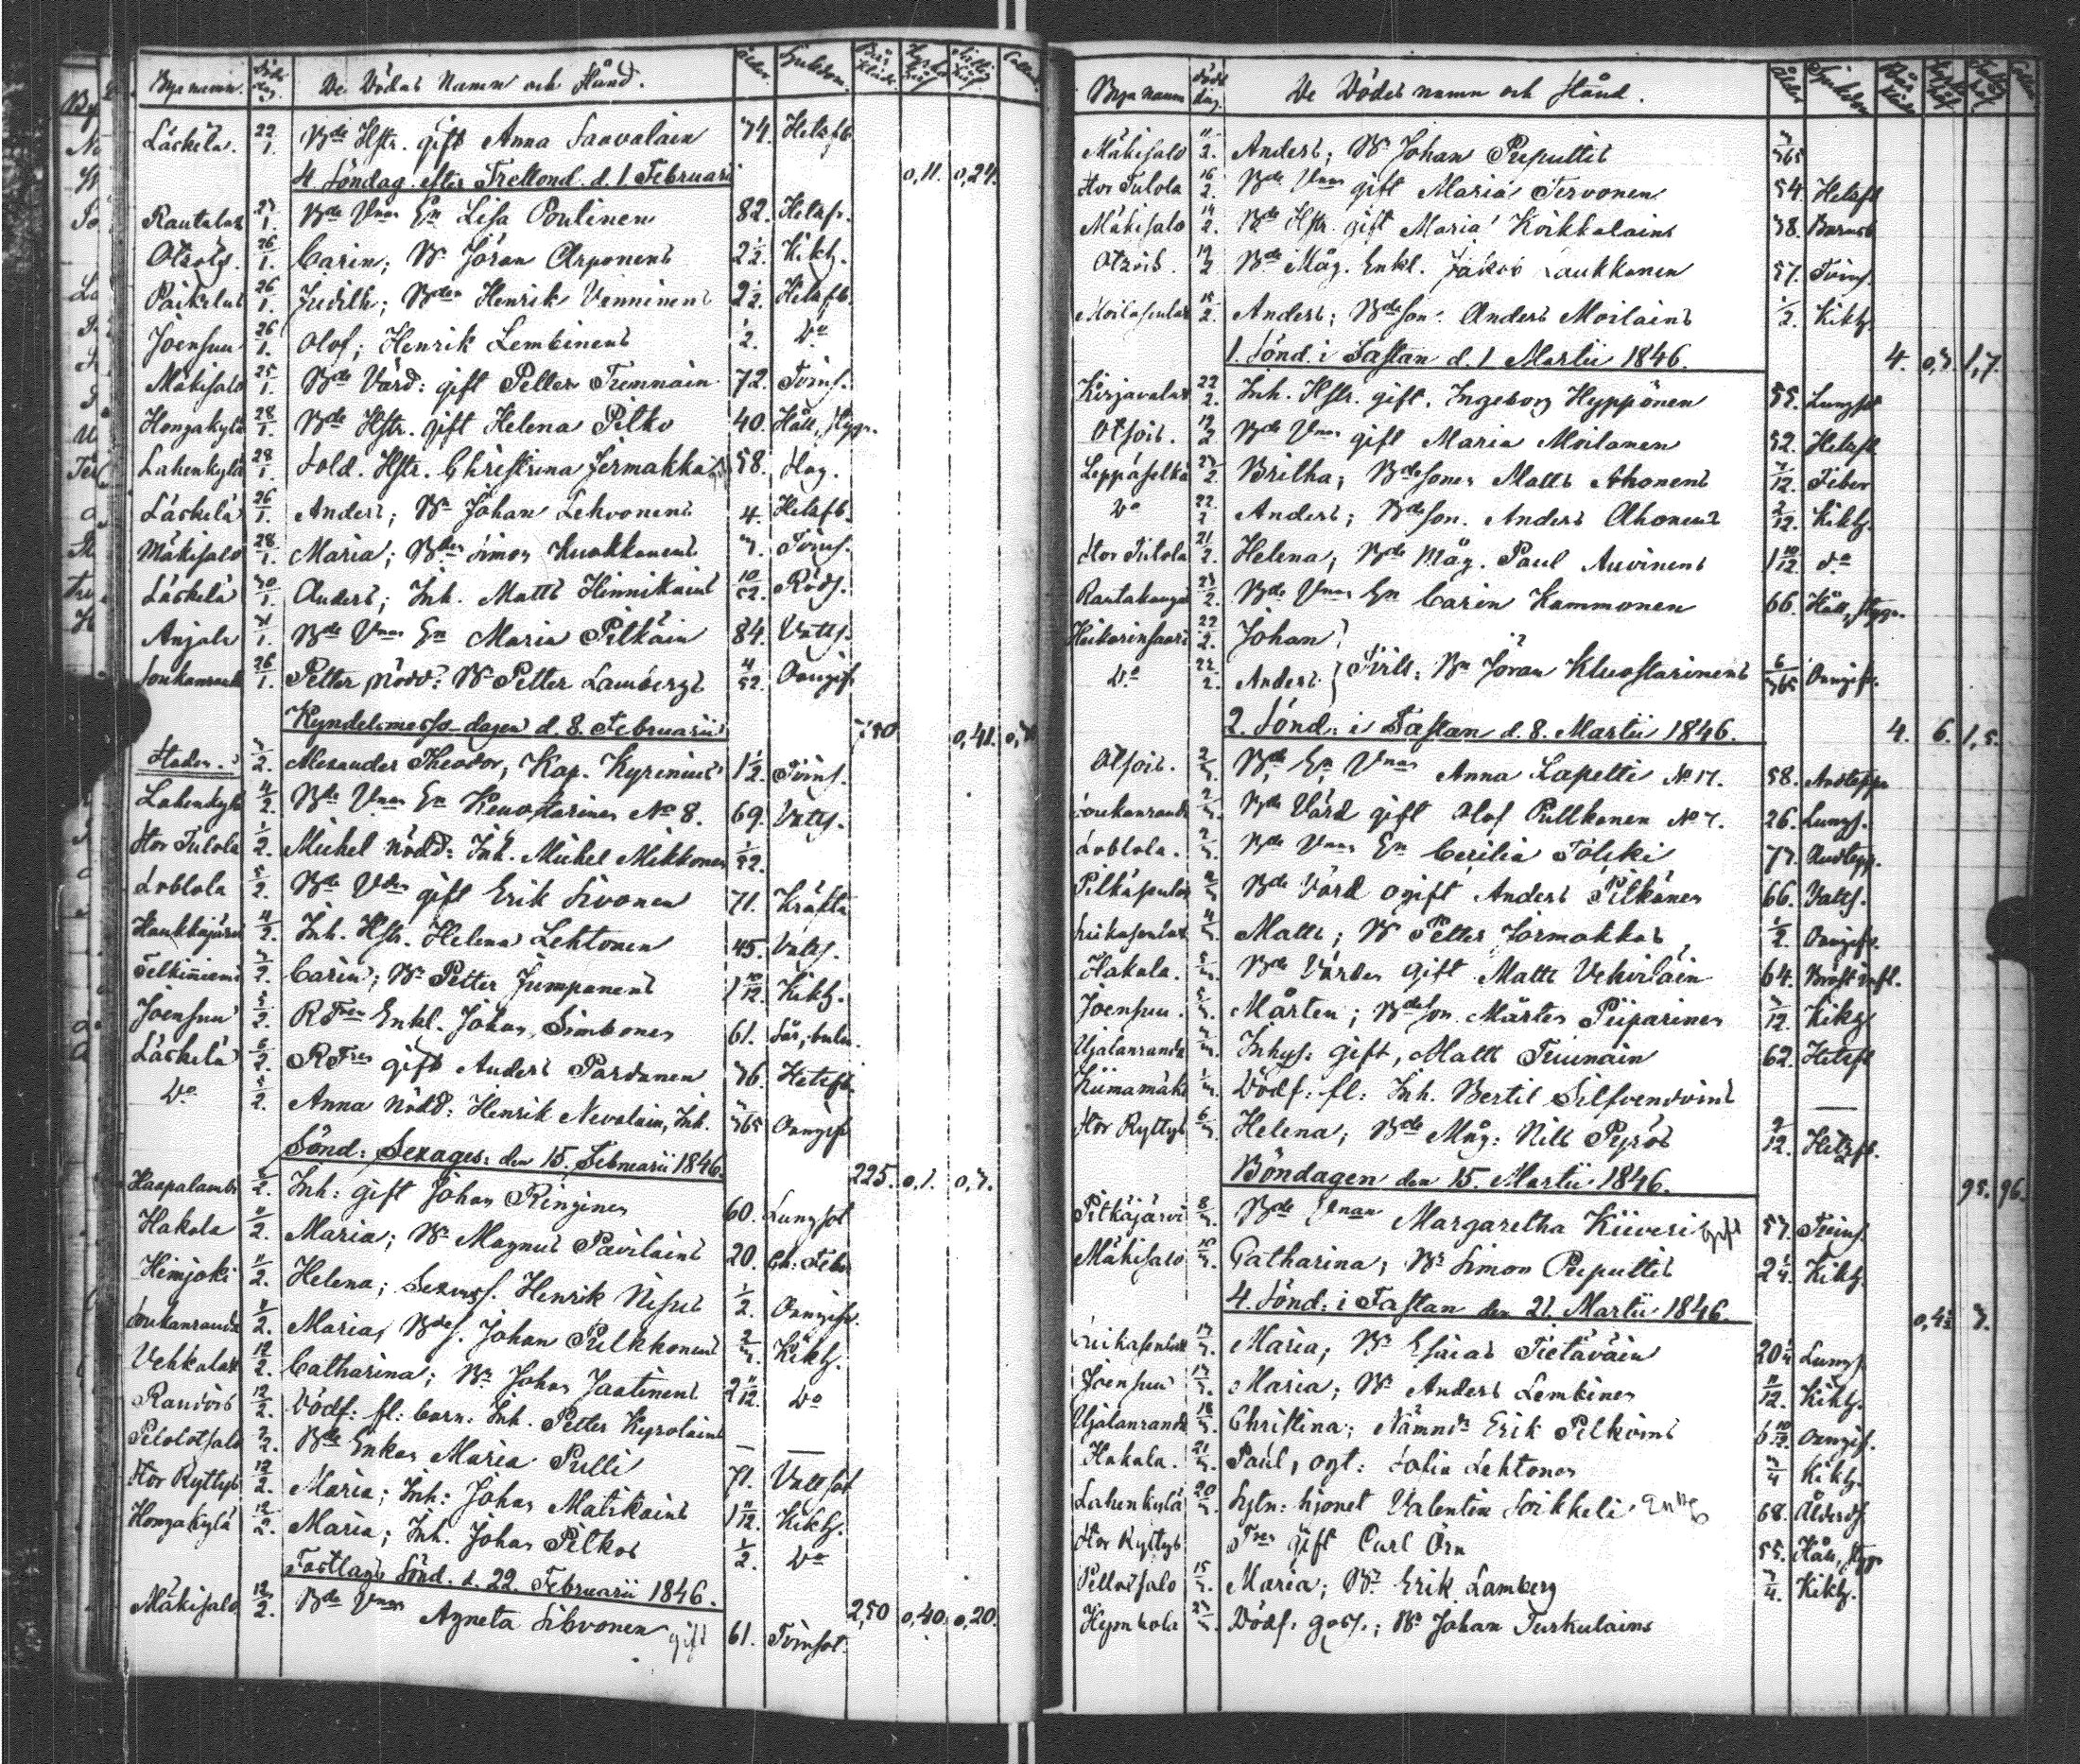 Byanamn. Döds dag. De Dödas Namn och Stånd. Ålder. Sjukdom.
Läskelä. 22/1. Bde Hstr. gift Anna Saavalain 74. Hetsfb.
4. Söndag. efter Trettond. d. 1 Februari 0,11. 0,24.
Rautalax 27/1. Bde Unan En Lisa Poutinen 82. Hetsf.
Otsois. 26/1. Carin; B. Jöran Arponens 2 1/2. Kikh.
26/1. Judith; Bden Henrik Vänninens 2 1/2. Hetsfb.
Joensuu 26/1. Olof; Henrik Lembinens 1/2. Do
Mäkisalo 25/1. Bde Värd: gift Petter 72. Tvins.
Hongakylä 28/1. Bde Hstr. gift Helena Pitko 40. Håll, stygn.
Lahenkylä 28/1. Sold. Hstr. Christina Jermakka 58. Slag.
Läskelä 26/1. Anders; Bn Johan Lehvonens 4. Hetsfb.
Mäkisalo 28/1. Maria; Bden Simon Kuokkanens 3. Tvins.
Läskelä 30/1. Anders; Inh. Matts Hinnikains 10/52. Röds.
Anjala 31/1. Bde Unan En Maria Pitkäin 84. Vatts.
Soukanranda 26/1. Petter nödd: Bn Petter Lambergs 4/52. Oangif.
Kyndelsmesso-dagen d. 8. Februarii 0,41.
Staden. 3/2. Alexander Theodor, Kap. Kyrenius 1 1/2. Tvins.
Lahenkylä 4/2. Bde Unan En Kluostarinen No 8. 69. Vatts.
Stor Tulola 1/2. Michel nödd: Inh. Michel Mikkonen 1/52.
5/2. Bde Vden gift Erik Sivonen 71. Kräfta
Haukkajärvi 4/2. Inh. Hstr. Helena Lehtonen 45. Vatts.
3/2. Carin; Bn Petter Jumpanens 1 10/12. Kikh.
Joensuu 5/2. Enkl. Johan Simbonen 61.
Läskelä 6/2. gift Anders Pardanen 76. Hetsfb.
Do 5/2. Anna nödd: Henrik Nevalain, Inh. 3/365 Oangif
Sönd: Sexages: den 15. Februarii 1846. 225. 0,1. 0,7.
Haapalambi 5/2. Inh: gift Johan Ringinen 60. Lungsot
Hakala 11/2. Maria; Bn Magnus Pävilains 20. Feber
Heinjoki 11/2. Helena; Henrik Nisus 1/2. Oangif.
Soukanranda 11/2. Maria, Bdes. Johan Pulkkonens 2/3. Kikh.
Vehkalax 12/2. Catharina; Bn Johan Jaatinens 2 11/12. Do
12/2. Dödf: fl: barn: Inh. Petter Kyrolains — —
Bde Enkan Maria Pulli 71. Vattsot
Stor Ryttys 12/2. Maria; Inh: Johan Matikains 1 11/12. Kikh.
Hongakylä 12/2. Maria; Inh. Johan Pitkos 1/2. Do
Fastlags Sönd. d. 22. Februarii 1846. 2,50 0,40. 0,20.
Mäkisalo 12/2. Bde Unan Agneta Sihvonen gift 61. Tvinsot.
Byanamn Döds dag. De Dödas namn och Stånd. Ålder Sjukdom
Mäkisalo 11/2. Anders; Bn Johan Puputtis 3/365
Stor Tulola 16/2. Bde Unan gift Maria Tervonen 54. Hetsfb
Mäkisalo 14/2. Bde Hstr. gift Maria Koikkalains 38. Barnsb
Otsois. Bde Måg. Enkl. Jakob Laukkanen 57. Tvins.
15/2. Anders; Bdeson. Anders Moilains 1/2. Kikh.
1. Sönd. i Fastan d. 1 Martii 1846. 4. 0,3. 1,7.
Kirjavalax 22/2. Inh. Hstr. gift. Ingeborg Hyppönen 55. Lungsot
Otsois. Bde Unan gift Maria Moilanen 52. Hetsfb
Leppäselkä Britha; Bdesonen Matts Ahonens 7/12. Feber
Do 22/2 Anders; Bdeson. Anders Ahonens 2/12. Kikh.
Stor Tulola 21/2. Helena, Bde Måg. Paul Auvinens 1 10/12. do
Rautakangas Bde Unan En Carin Kammonen 66. Håll, stygn.
22/2. Johan
Do 22/2. Anders } Tvill: Bn Jöran Kluostarinens 6/365 Oangif.
2. Sönd: i Fastan d. 8. Martii 1846. 4. 6. 1,5.
Otsois. 2/3. Bde En Unan Anna Lapetti No 17. 58. Andtäppa
Soukanranda 2/3. Bde Värd gift Olof Pullkonen No 7. 26. Lungs.
Bde Unan En Cecilia Tölski 77. Andtäpp.
2/3. Bde Värd ogift Anders Pitkänen 66. Vatts.
4/3. Matts; Bn Petter Jormakkas 1/2. Oangif.
Hakala. 5/3. Bde Värden gift Matts Vehviläin 64. Bröstinfl.
Joensuu. 5/3. Mårten; Bdeson. Mårten Piiparinen 3/12. Kikh
Ujalanranda Inhys: gift, Matts 62. Hetsfb
Kiimamäki 1/3. Dödf: fl: Inh. Bertil Silfvendoins —
Stor Ryttys 6/3. Helena; Bde Måg: Nils Pyräs 2/12. Hetsfb.
Böndagen den 15. Martii 1846. 95. 96.
Pitkäjärvi 8/3. Bde Unan Margaretha Kiiveri gift 57. Tvins.
Mäkisalo 10/3. Catharina; Bn Simon Puputtis 2 1/4. Kikh.
4. Sönd: i Fastan den 21. Martii 1846.
Maria; Bn Esaias Tietäväin 20 1/4 Lungs.
Joensuu Maria; Bn Anders Lembinen 11/12. Kikh.
Ujalanranda 18/3. Christina; Nämndn Erik Pitkoins 6 10/12. Oangif.
Hakala. 21/3. Paul, ogt: Sofia Lehtonen 3/4 Kikh.
Lahenkylä 20/3. Sytn: hjonet Valentin Soikkeli Enkl 68. Ålderd.
Stor Ryttys gift Carl Örn 55. Håll, stygn
15/3. Maria; Bn Erik Lamberg 3/4. Kikh.
Hymbola Dödf. goss.; Bn Johan Turkulains